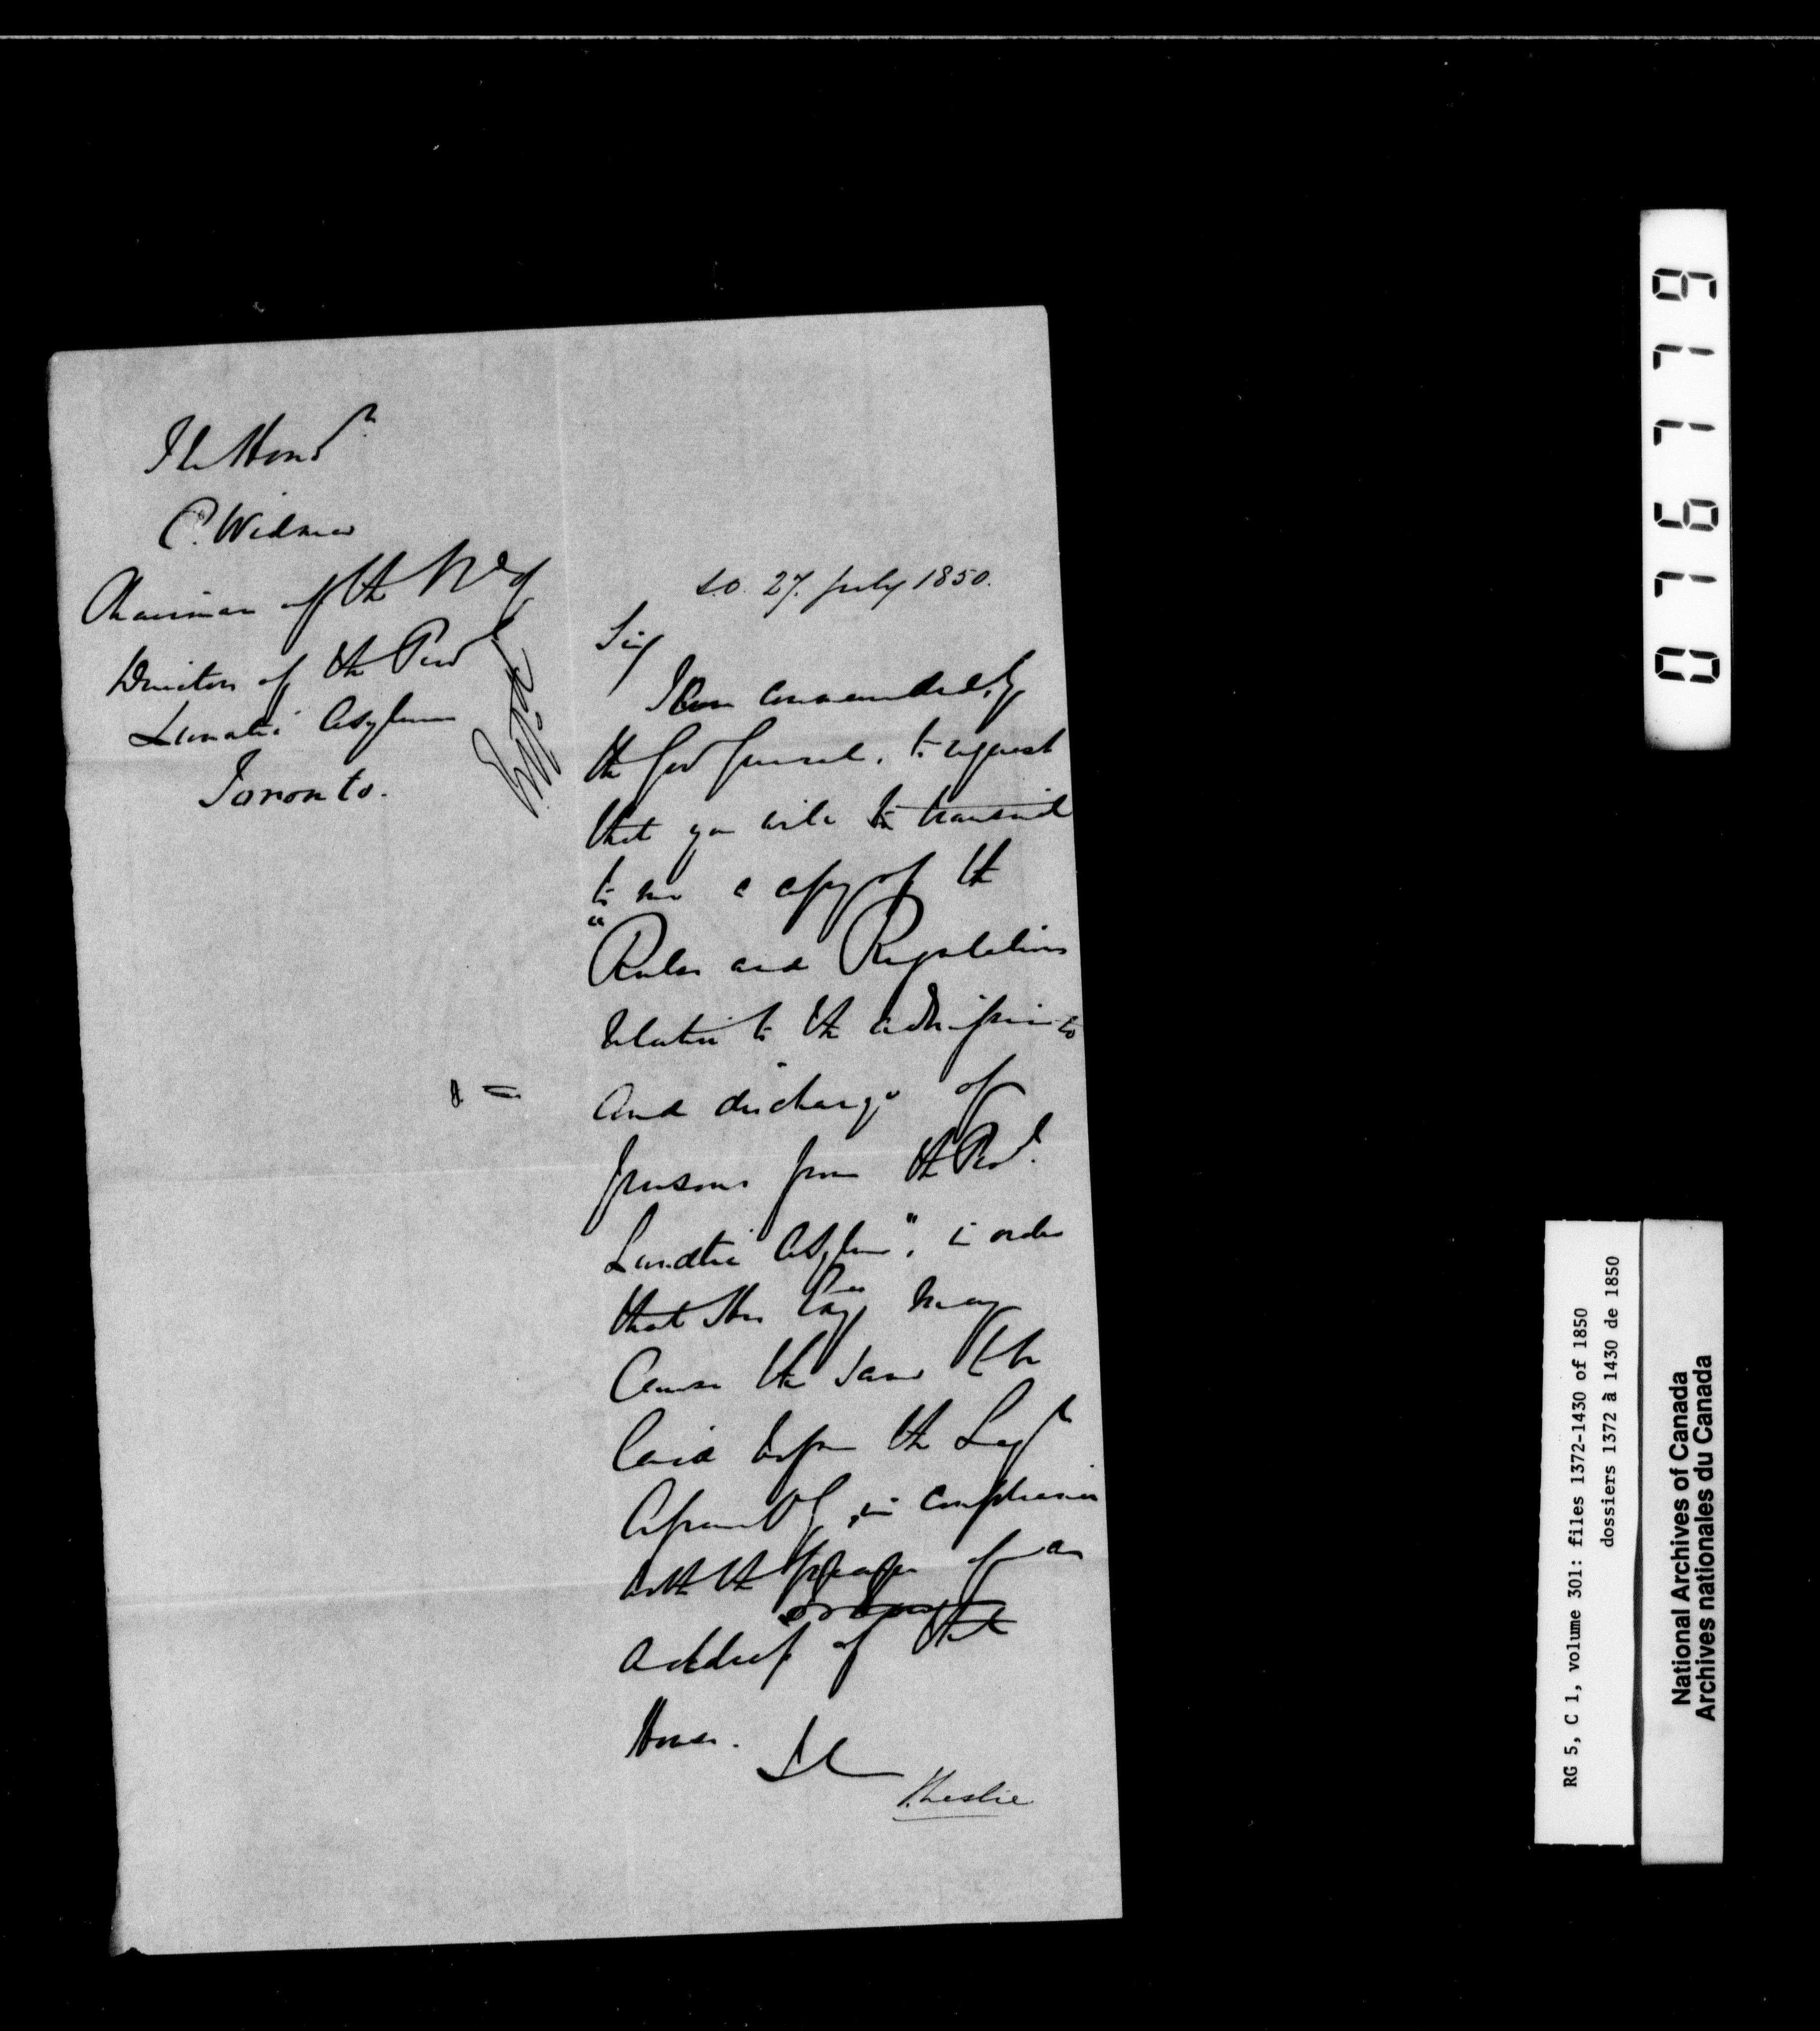 The Honble
C. Widmer
Chairman of the Bd of
Directors of the Provl
Lunatic Asylum
Toronto.
S.O. 27. July 1850.
Sir,
I am commanded by
the Gov General, to request
that you will to transmit
to me a copy of the
"Rules and Regulations
relative to the admission to
and discharge of
persons from the Provl.
Lunatic Asylum", in order
that His Exy may
Cause the same to be
laid before the Legve
Assembly, in compliance
with the prayer of an
address of that
House.
J. Leslie
076779
RG 5, C 1, volume 301: files 1372-1430 of 1850
dossiers 1372 à 1430 de 1850
National Archives of Canada
Archives nationales du Canada